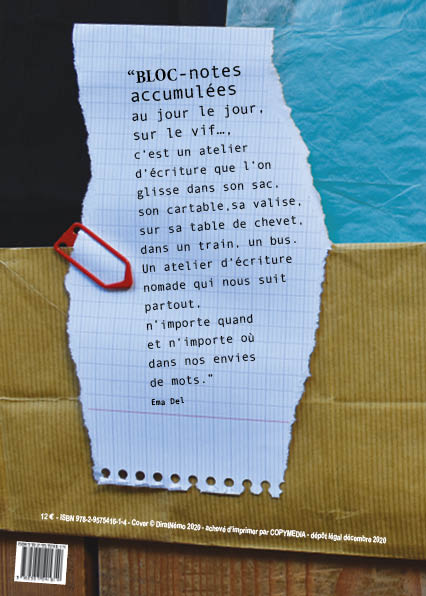 “BLOC-notes
accumulées
au jour le jour,
sur le vif…,
c'est un atelier
d'écriture que l'on
glisse dans son sac,
son cartable,sa valise,
sur sa table de chevet,
dans un train, un bus.
Un atelier d'écriture
nomade qui nous suit
partout,
n'importe quand
et n'importe où
dans nos envies
de mots.”
Ema Del
12 € - ISBN 978-2-9575416-1-4 - Cover © DiratNémo 2020 - achevé d'imprimer par COPYMEDIA - dépôt légal décembre 2020